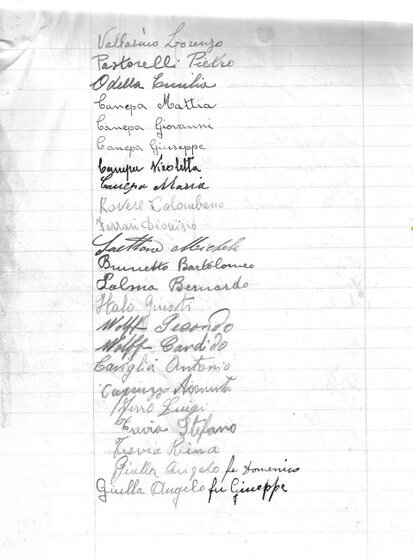 Vallarino Lorenzo
Pastorelli Pietro
Odella Emilia
Canepa Mattia
Canepa Giovanni
Canepa Giuseppe
Canepa Nicoletta
Canepa Maria
Rovere Colombano
Ferrari Dionisio
Michele
Brunetto Bartolomeo
Palma Bernardo
Italo Giusti
Wolff Secondo
Wolff Candido
Caviglia Antonio
Ferro Luigi
Trevia Stefano
Trevia Rina
Giulla Angelo fu Domenico
Giulla Angelo fu Giuseppe